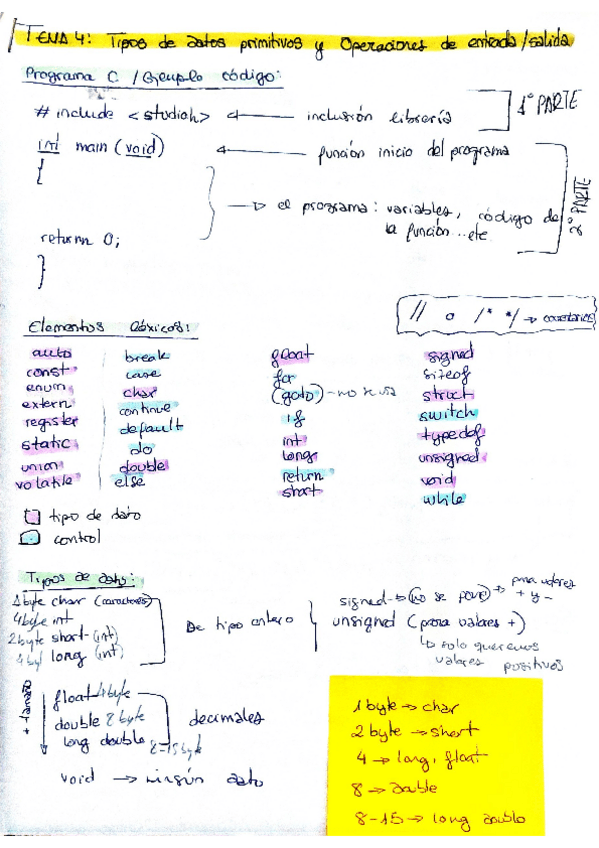 TEMA 4: Tipos de datos primitivos y Operaciones de entrada/salida
Programa C / Ejemplo código:
# include <studioh> ← inclusión librería
1º PARTE
int main (void) ← función inicio del programa
{
→ el programa: variables, código de
la función ..etc.
2º PARTE
return 0;
}
// o /* */ →
Elementos léxicos:
auto break float signed
const case for sizeof
enum char (goto) - no se usa struct
extern continue if switch
register default int typedef
static do long unsigned
union double return void
volatile else short while
tipo de dato
control
Tipos de dato:
1byte char (caracteres)
4byte int
2byte short (int)
4byt long (int)
De tipo entero
signed → (no se pone) → para valores
+ y -
unsigned (para valores +)
↳ solo queremos
valores positivos
+ tamaño
float 4byte
double 8 byte
long double 8-15 byte
decimales
void → ningún dato
1 byte → char
2 byte → short
4 → long, float
8 → double
8-15 → long double